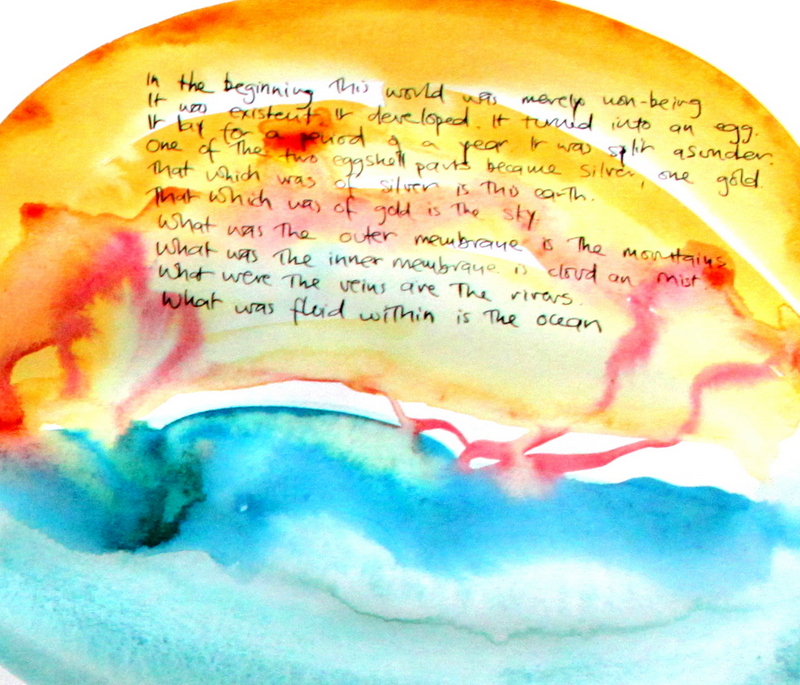 In the beginning This world was merely non-being
It was existent It developed. It turned into an egg.
It lay for a period of a year It was split asunder.
One of The two eggshell parts became silver, one gold.
That which was of silver is This earth.
That which was of gold is The sky.
What was The outer membrane is The mountains
What was The inner membrane is cloud an mist.
What were The veins are The rivers.
What was fluid within is The ocean